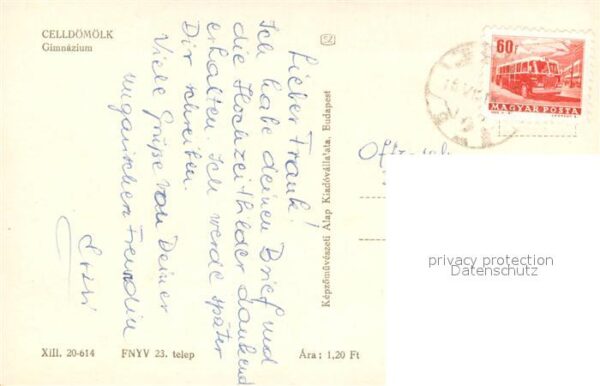 CELLDÖMÖLK
Gimnázium
Lieber Frank!
Ich habe deinen Brief und
die Hochzeitbilder dankend
erhalten. Ich werde später
Dir schreiben.
Viele Grüße von Deiner
ungarischen Freundin
Erzsi
XIII. 20-614 FNYV 23. telep Ára: 1,20 Ft
Képzőművészeti Alap Kiadóvállalata, Budapest
60f
MAGYAR POSTA
privacy protection
Datenschutz